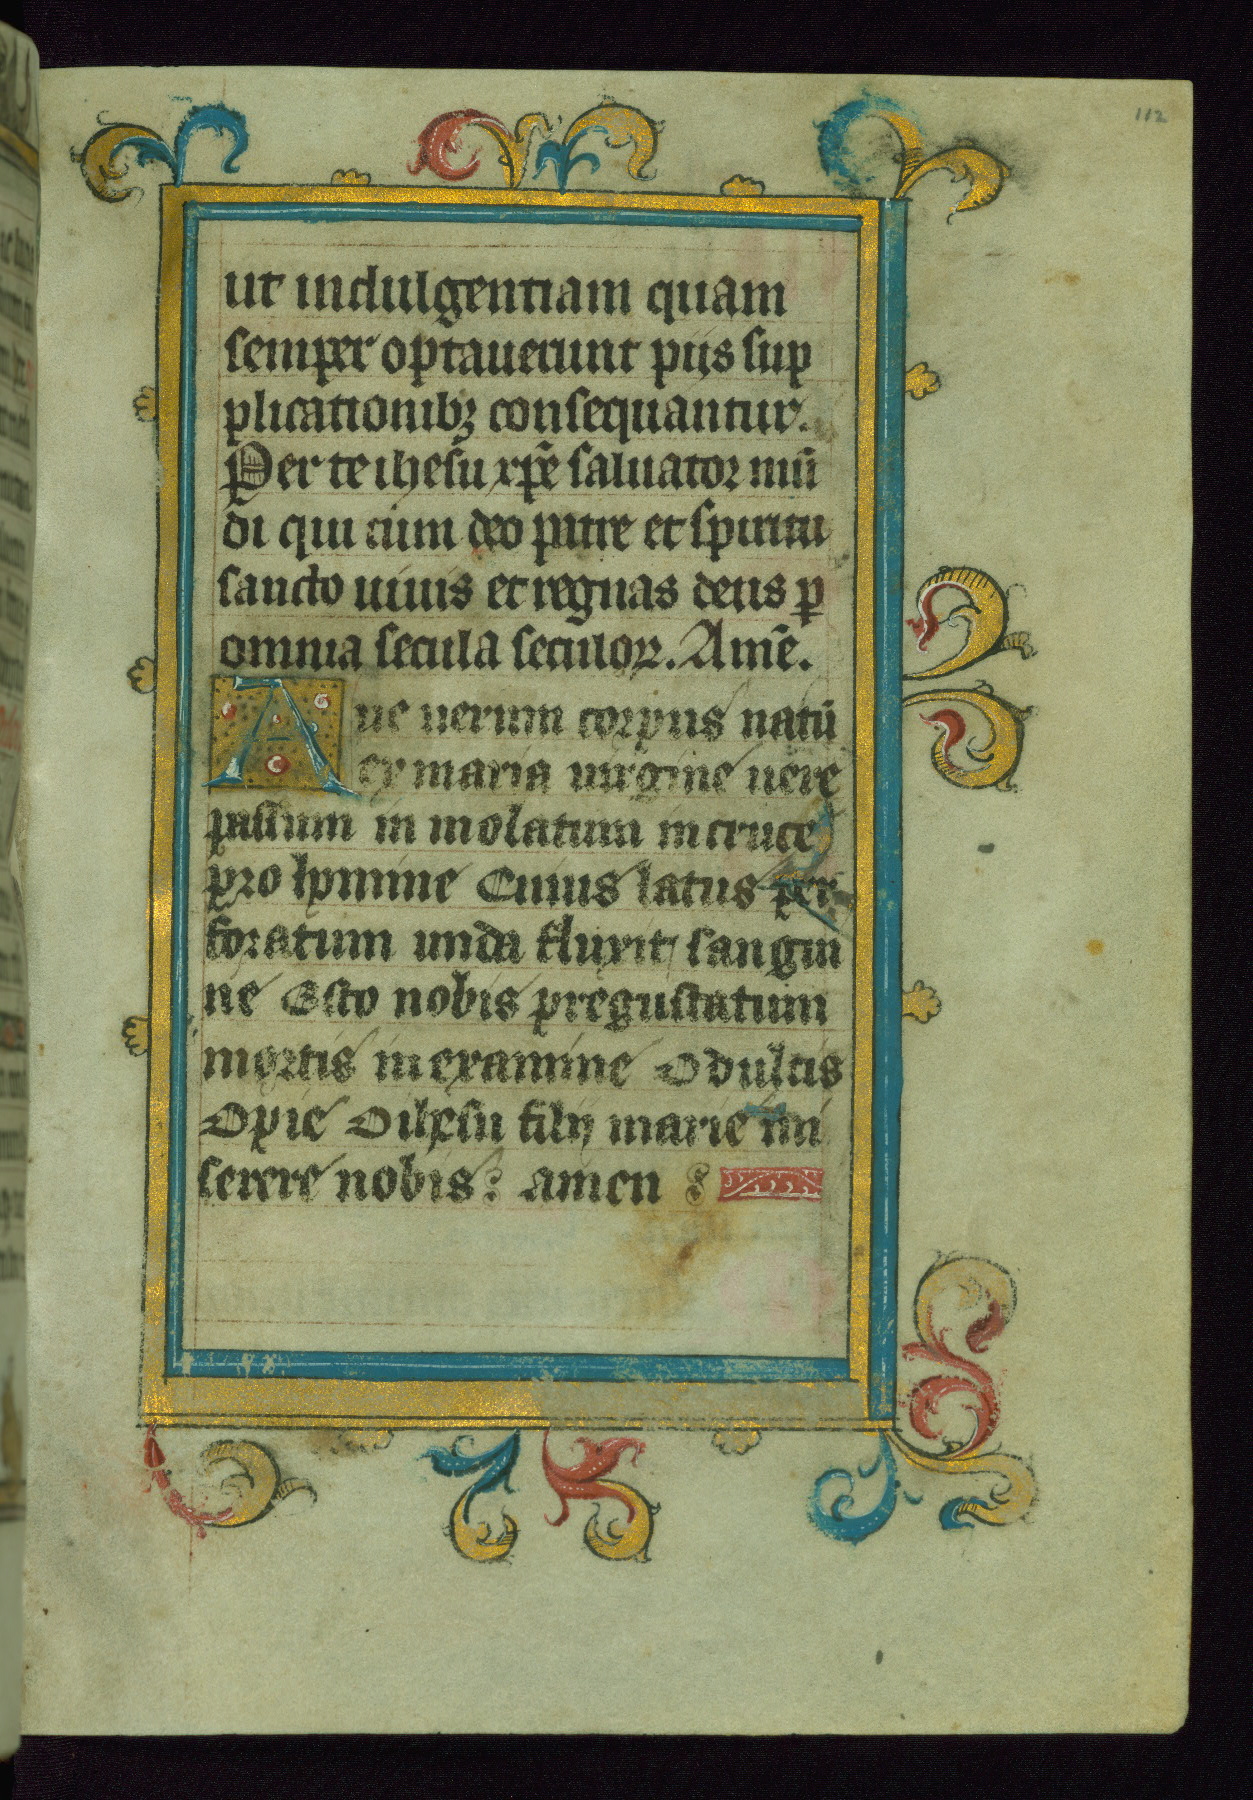 112
ut indulgentiam quam
semper optauerunt piis sup
plicationibꝫ consequantur.
Per te ihesu xp̄e saluator mū
di qui cum deo patre et spiritu
sancto uiuis et regnas deus ꝑ
omnia secula seculoꝝ. Amē.
Aue uerum corpus natū
ex maria uirgine uere
passum in molatum in cruce
pro homine Cuius latus per
foratum unda fluxit sangui
ne Esto nobis pregustatum
mortis in examine O dulcis
O pie O ihesu filij marie mi
serere nobis : amen